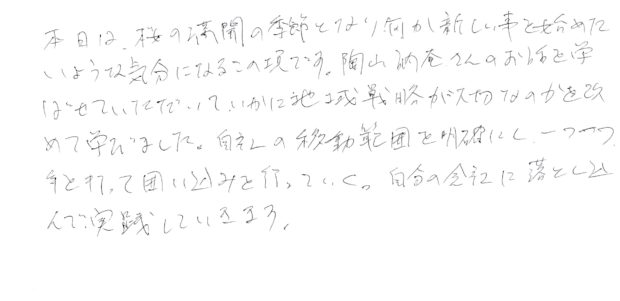 本日は、桜の満開の季節となり何か新しい事を始めた
いような気分になるこの頃です。陶山訥庵さんのお話を学
ばせていただいていかに地域戦略が大切なのかを改
めて学びました。自社の移動範囲を明確にし、一つ一つ
手を打って囲い込みを行っていく。自分の会社に落とし込
んで実践していきます。